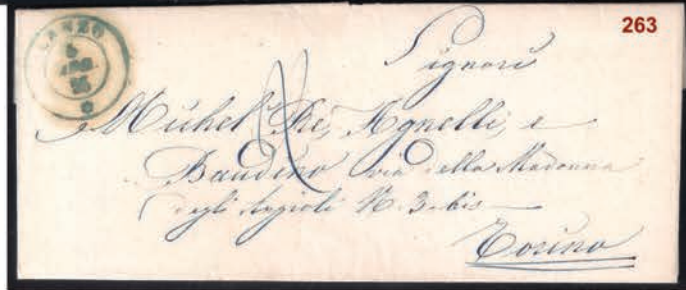 263
LANZO
5
Signori
Michel Ré, Agnelli, e
Baudino via della Madonna
degli Angioli N. 3 bis
Torino